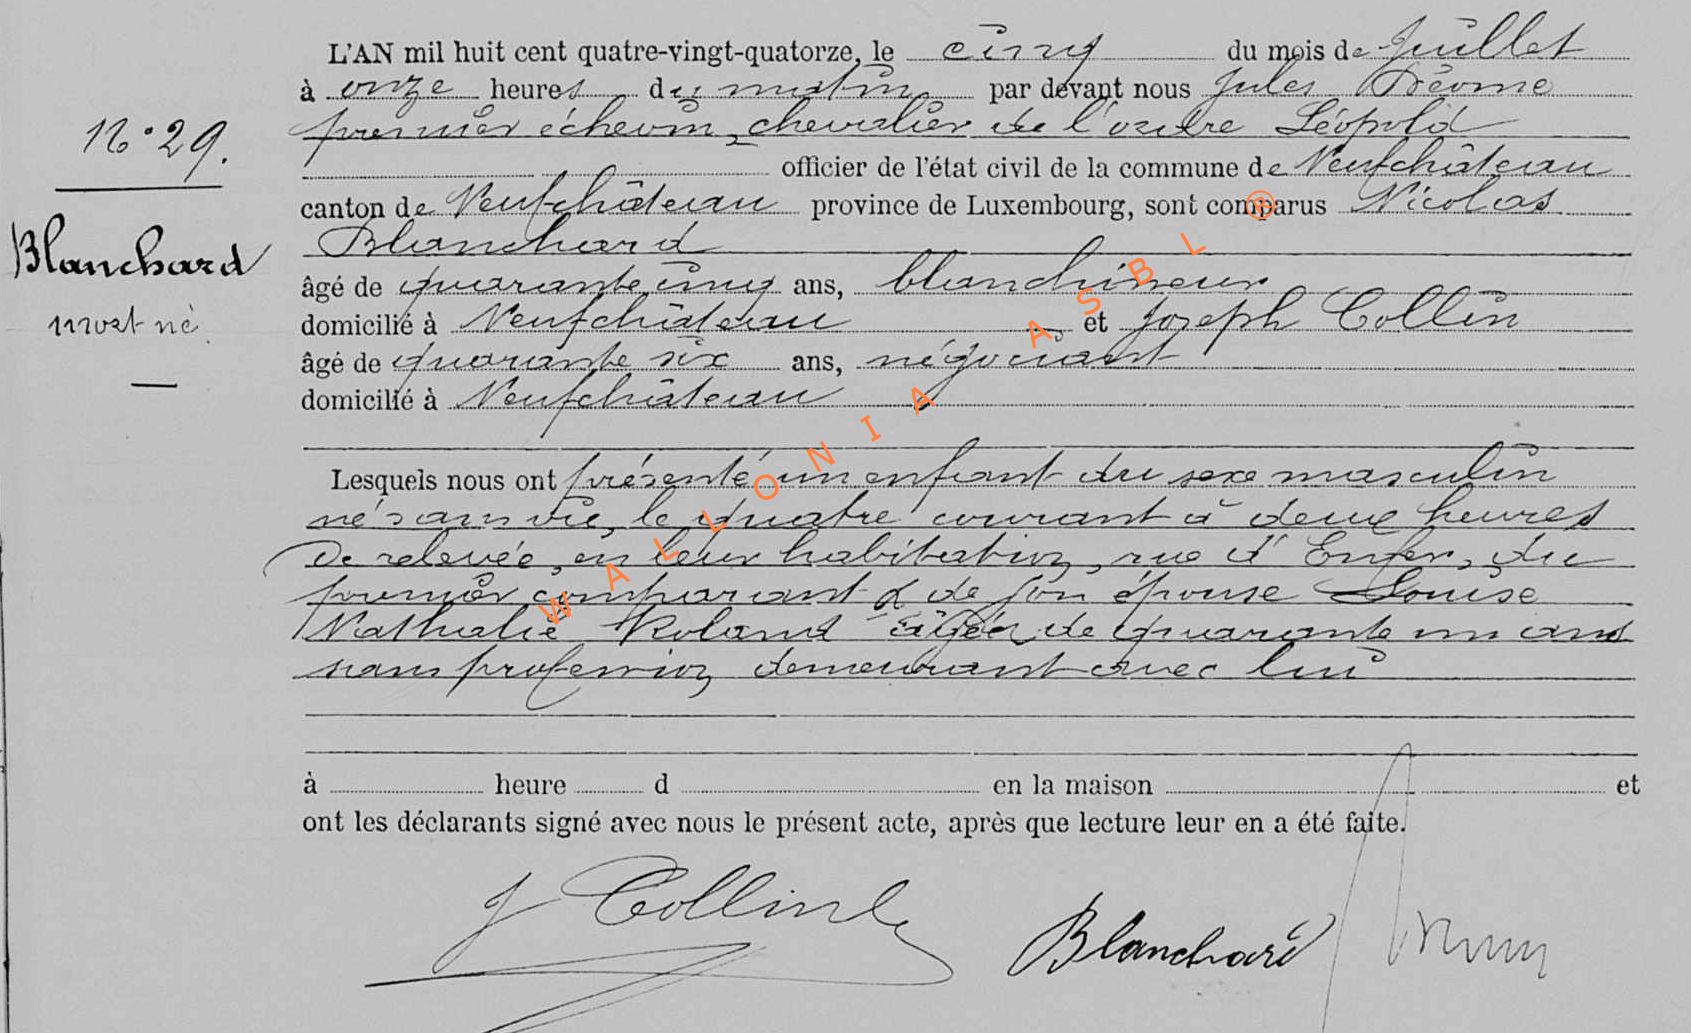 L'AN mil huit cent quatre-vingt-quatorze, le cinq du mois de Juillet
à onze heures du matin par devant nous Jules
premier échevin, chevalier de l'ordre Léopold
N° 29.
officier de l'état civil de la commune de Neufchâteau
canton de Neufchâteau province de Luxembourg, sont comparus Nicolas
Blanchard
Blanchard
mort né
âgé de quarante cinq ans, blanchisseur
domicilié à Neufchâteau et Joseph Collin
âgé de quarante six ans, négociant
domicilié à Neufchâteau
Lesquels nous ont présenté un enfant du sexe masculin
né sans vie, le quatre courant à deux heures
de relevée, en leur habitation, rue d'Enfer, du
premier comparant & de son épouse Louise
Nathalie Roland âgée de quarante un ans
sans profession demeurant avec lui
à heure d en la maison et
ont les déclarants signé avec nous le présent acte, après que lecture leur en a été faite.
J Collin Blanchard
WALLONIA ASBL ®